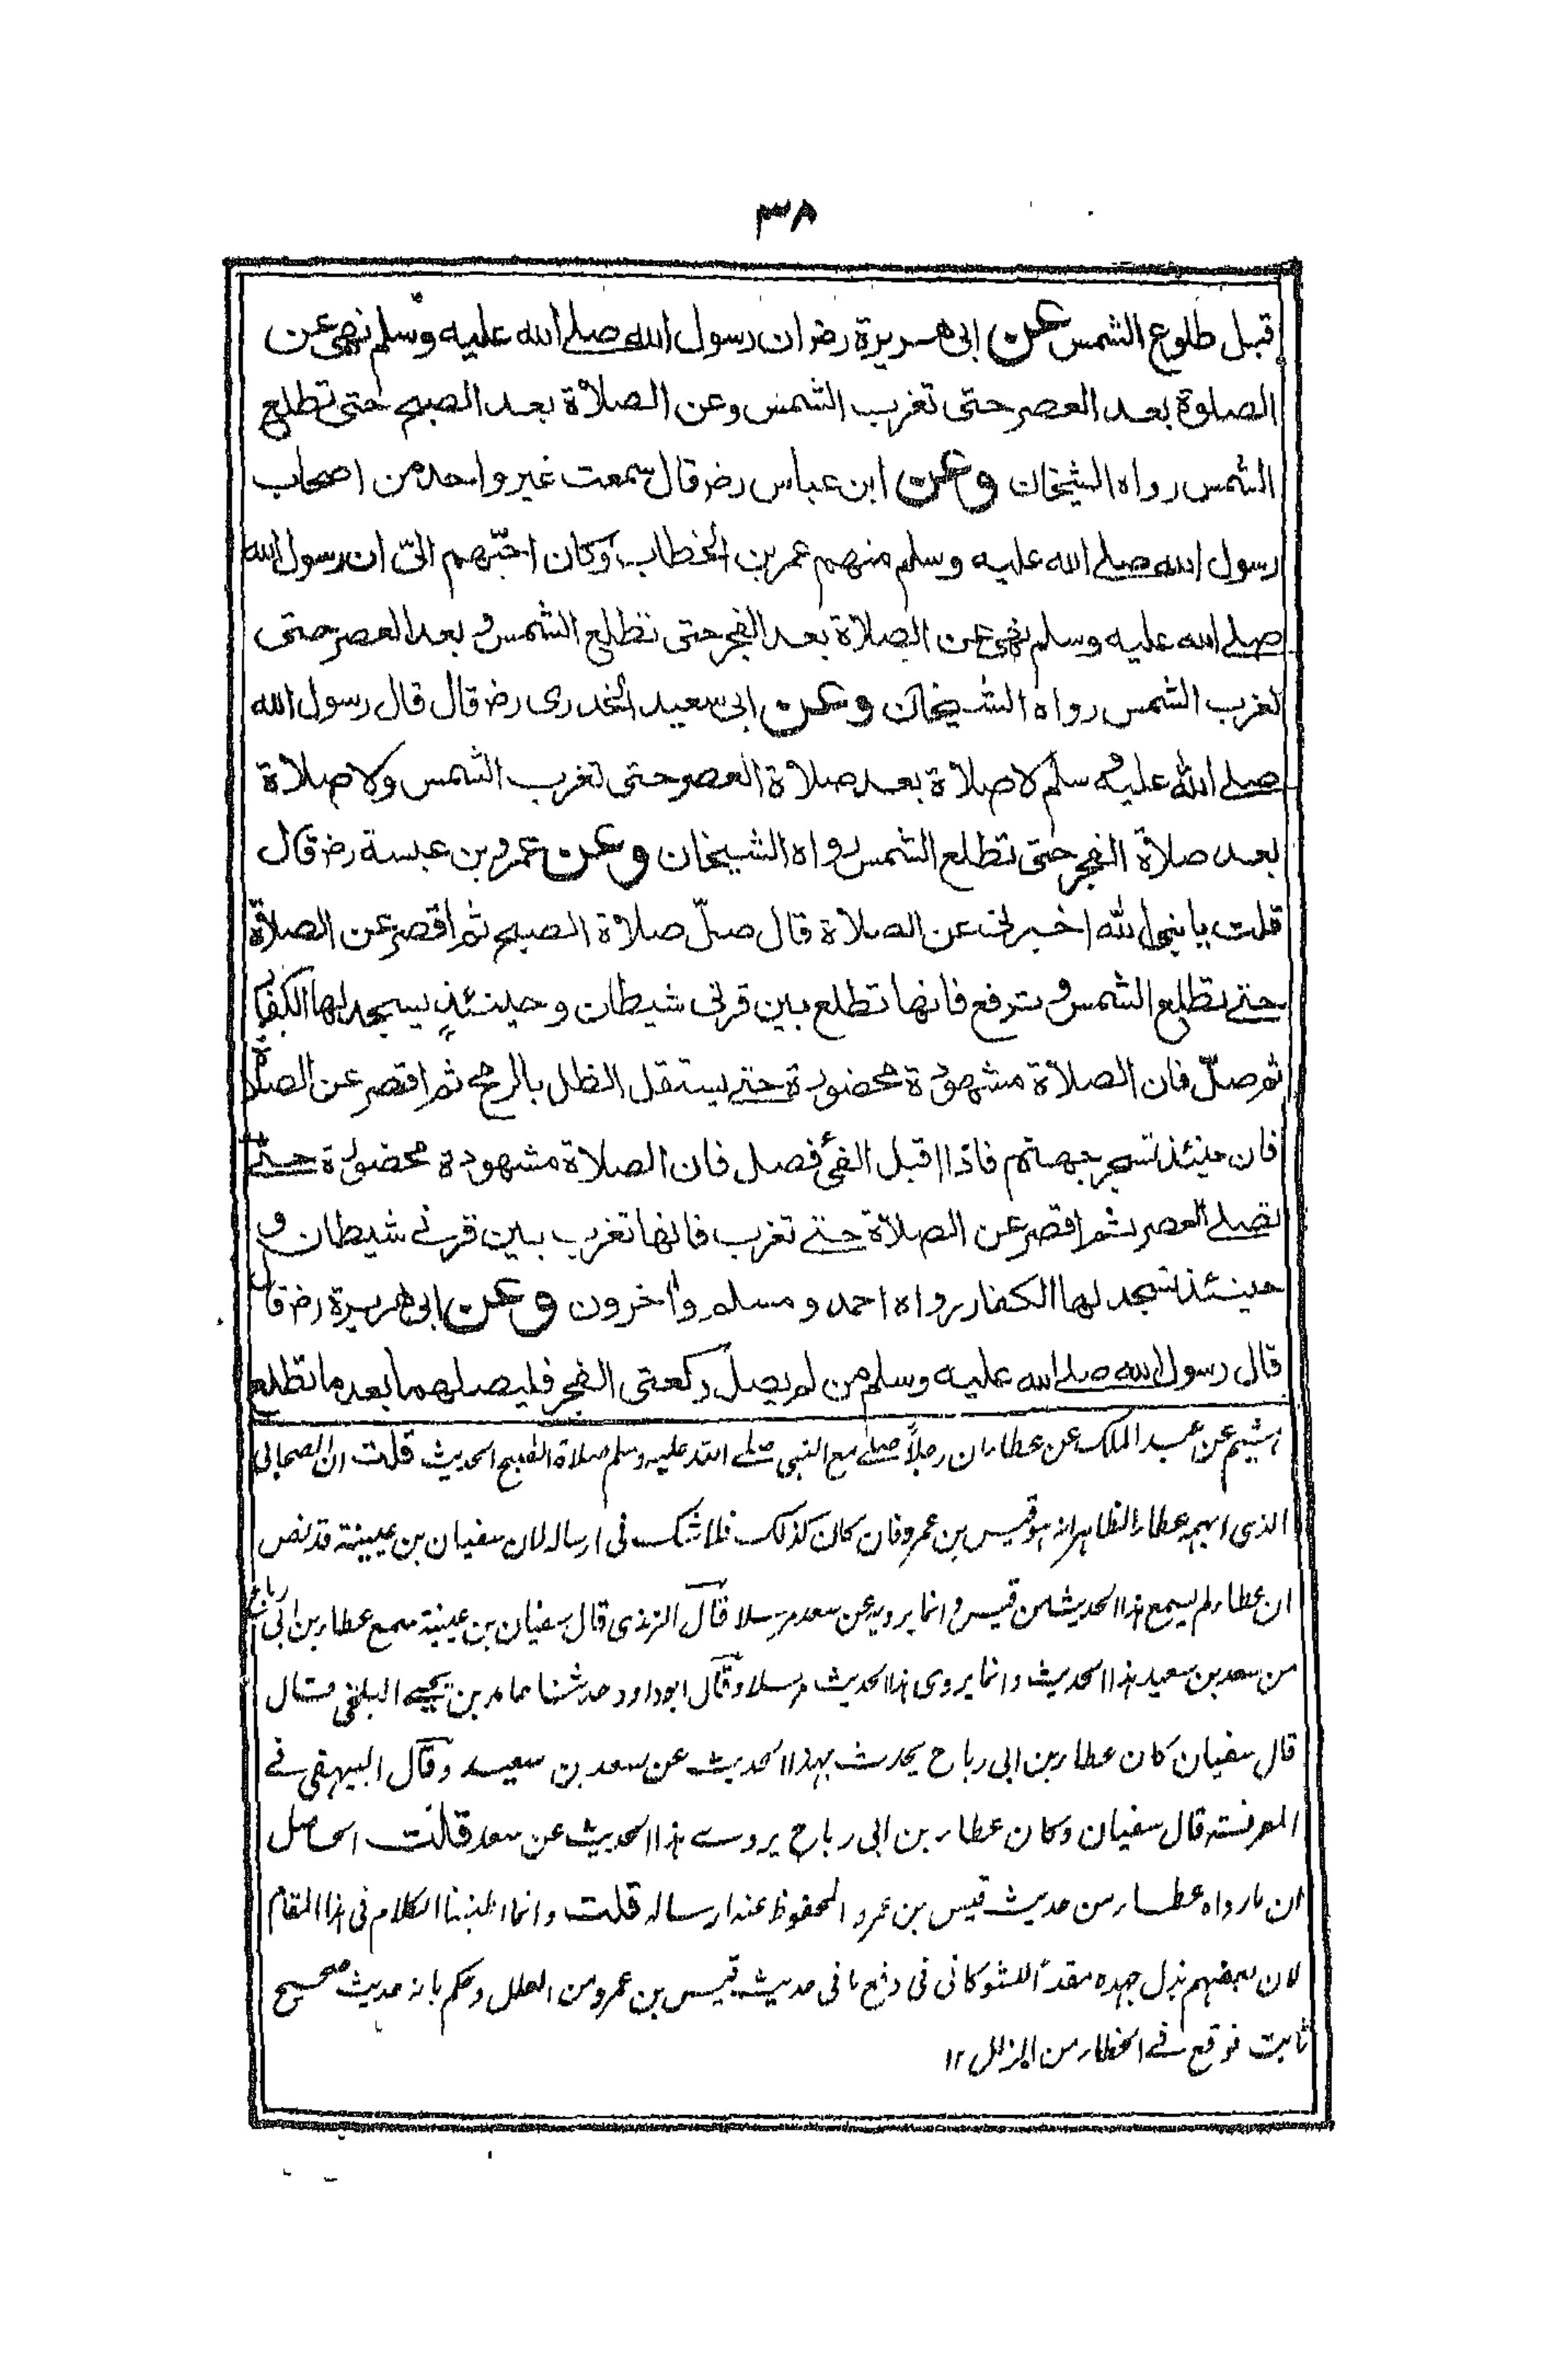 ٣٨
قبل طلوع الشمس عن ابی هريرة رضـ ان رسول الله صلے الله عليه وسلم نهی عن
الصلوة بعد العصر حتی تغرب الشمس وعن الصلاة بعد الصبح حتی تطلع
الشمس رواه الشيخان وعن ابن عباس رضـ قال سمعت غير واحد من اصحاب
رسول الله صلے الله عليه وسلم منهم عمر بن الخطاب وكان احبّهم الیّ ان رسول الله
صلے الله عليه وسلم نهی عن الصلاة بعد الفجر حتی تطلع الشمس و بعد العصر حتی
تغرب الشمس رواه الشيخان وعن ابی سعيد الخدری رضـ قال قال رسول الله
صلے الله عليه وسلم لا صلاة بعد صلاة العصر حتی تغرب الشمس ولا صلاة
بعد صلاة الفجر حتی تطلع الشمس رواه الشيخان وعن عمرو بن عبسة رضـ قال
قلت يا نبی الله اخبرنی عن الصلاة قال صلّ صلاة الصبح ثم اقصر عن الصلاة
حتے تطلع الشمس و ترفع فانها تطلع بين قرنی شيطان وحينئذٍ يسجد لها الكفار
ثم صلّ فان الصلاة مشهودة محضورة حتے يستقل الظل بالرمح ثم اقصر عن الصلاة
فان حينئذ تسجر جهنم فاذا اقبل الفئ فصل فان الصلاة مشهودة محضورة حتے
تصلے العصر ثم اقصر عن الصلاة حتے تغرب فانها تغرب بين قرنے شيطان و
حينئذ تسجد لها الكفار رواه احمد و مسلم واٰخرون وعن ابی هريرة رضـ قال
قال رسول الله صلے الله عليه وسلم من لم يصل ركعتی الفجر فليصلهما بعد ما تطلع
هشيم عن عبد الملك عن عطاء ان رجلاً صلے مع النبی صلے الله عليه وسلم صلاة الصبح الحديث قلت ان الصحابی
الذی ابهمه عطاء الظاهر انه هو قيس بن عمرو فان كان كذلك فلا شك فی ارساله لان سفيان بن عيينة قد نص
ان عطاء لم يسمع هذا الحديث من قيس و انما يرويه عن سعد مرسلا قال الترمذی قال سفيان بن عيينة سمع عطاء بن ابی رباح
من سعد بن سعيد هذا الحديث وانما يروی هذا الحديث مرسلا وقال ابو داود حدثنا حامد بن يحيے البلخی قال
قال سفيان كان عطاء بن ابی رباح يحدث بهذا الحديث عن سعد بن سعيد وقال البيهقی فے
المعرفة قال سفيان وكان عطاء بن ابی رباح يروے هذا الحديث عن سعد قلت الحاصل
ان ما رواه عطاء من حديث قيس بن عمرو المحفوظ عنه ارساله قلت وانما اطنبنا الكلام فی هذا المقام
لان بعضهم بذل جهده مقلداً للشوكانی فی دفع ما فی حديث قيس بن عمرو من العلل وحكم بانه حديث صحيح
ثابت فوقع فے الخطاء من الزلل ١٢